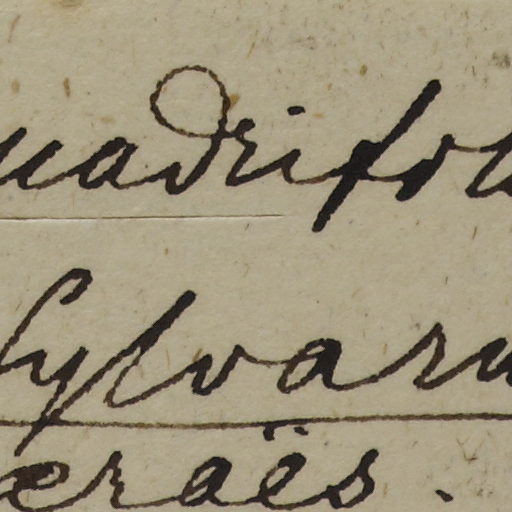 uadrifol
Sylvaru
æraës.